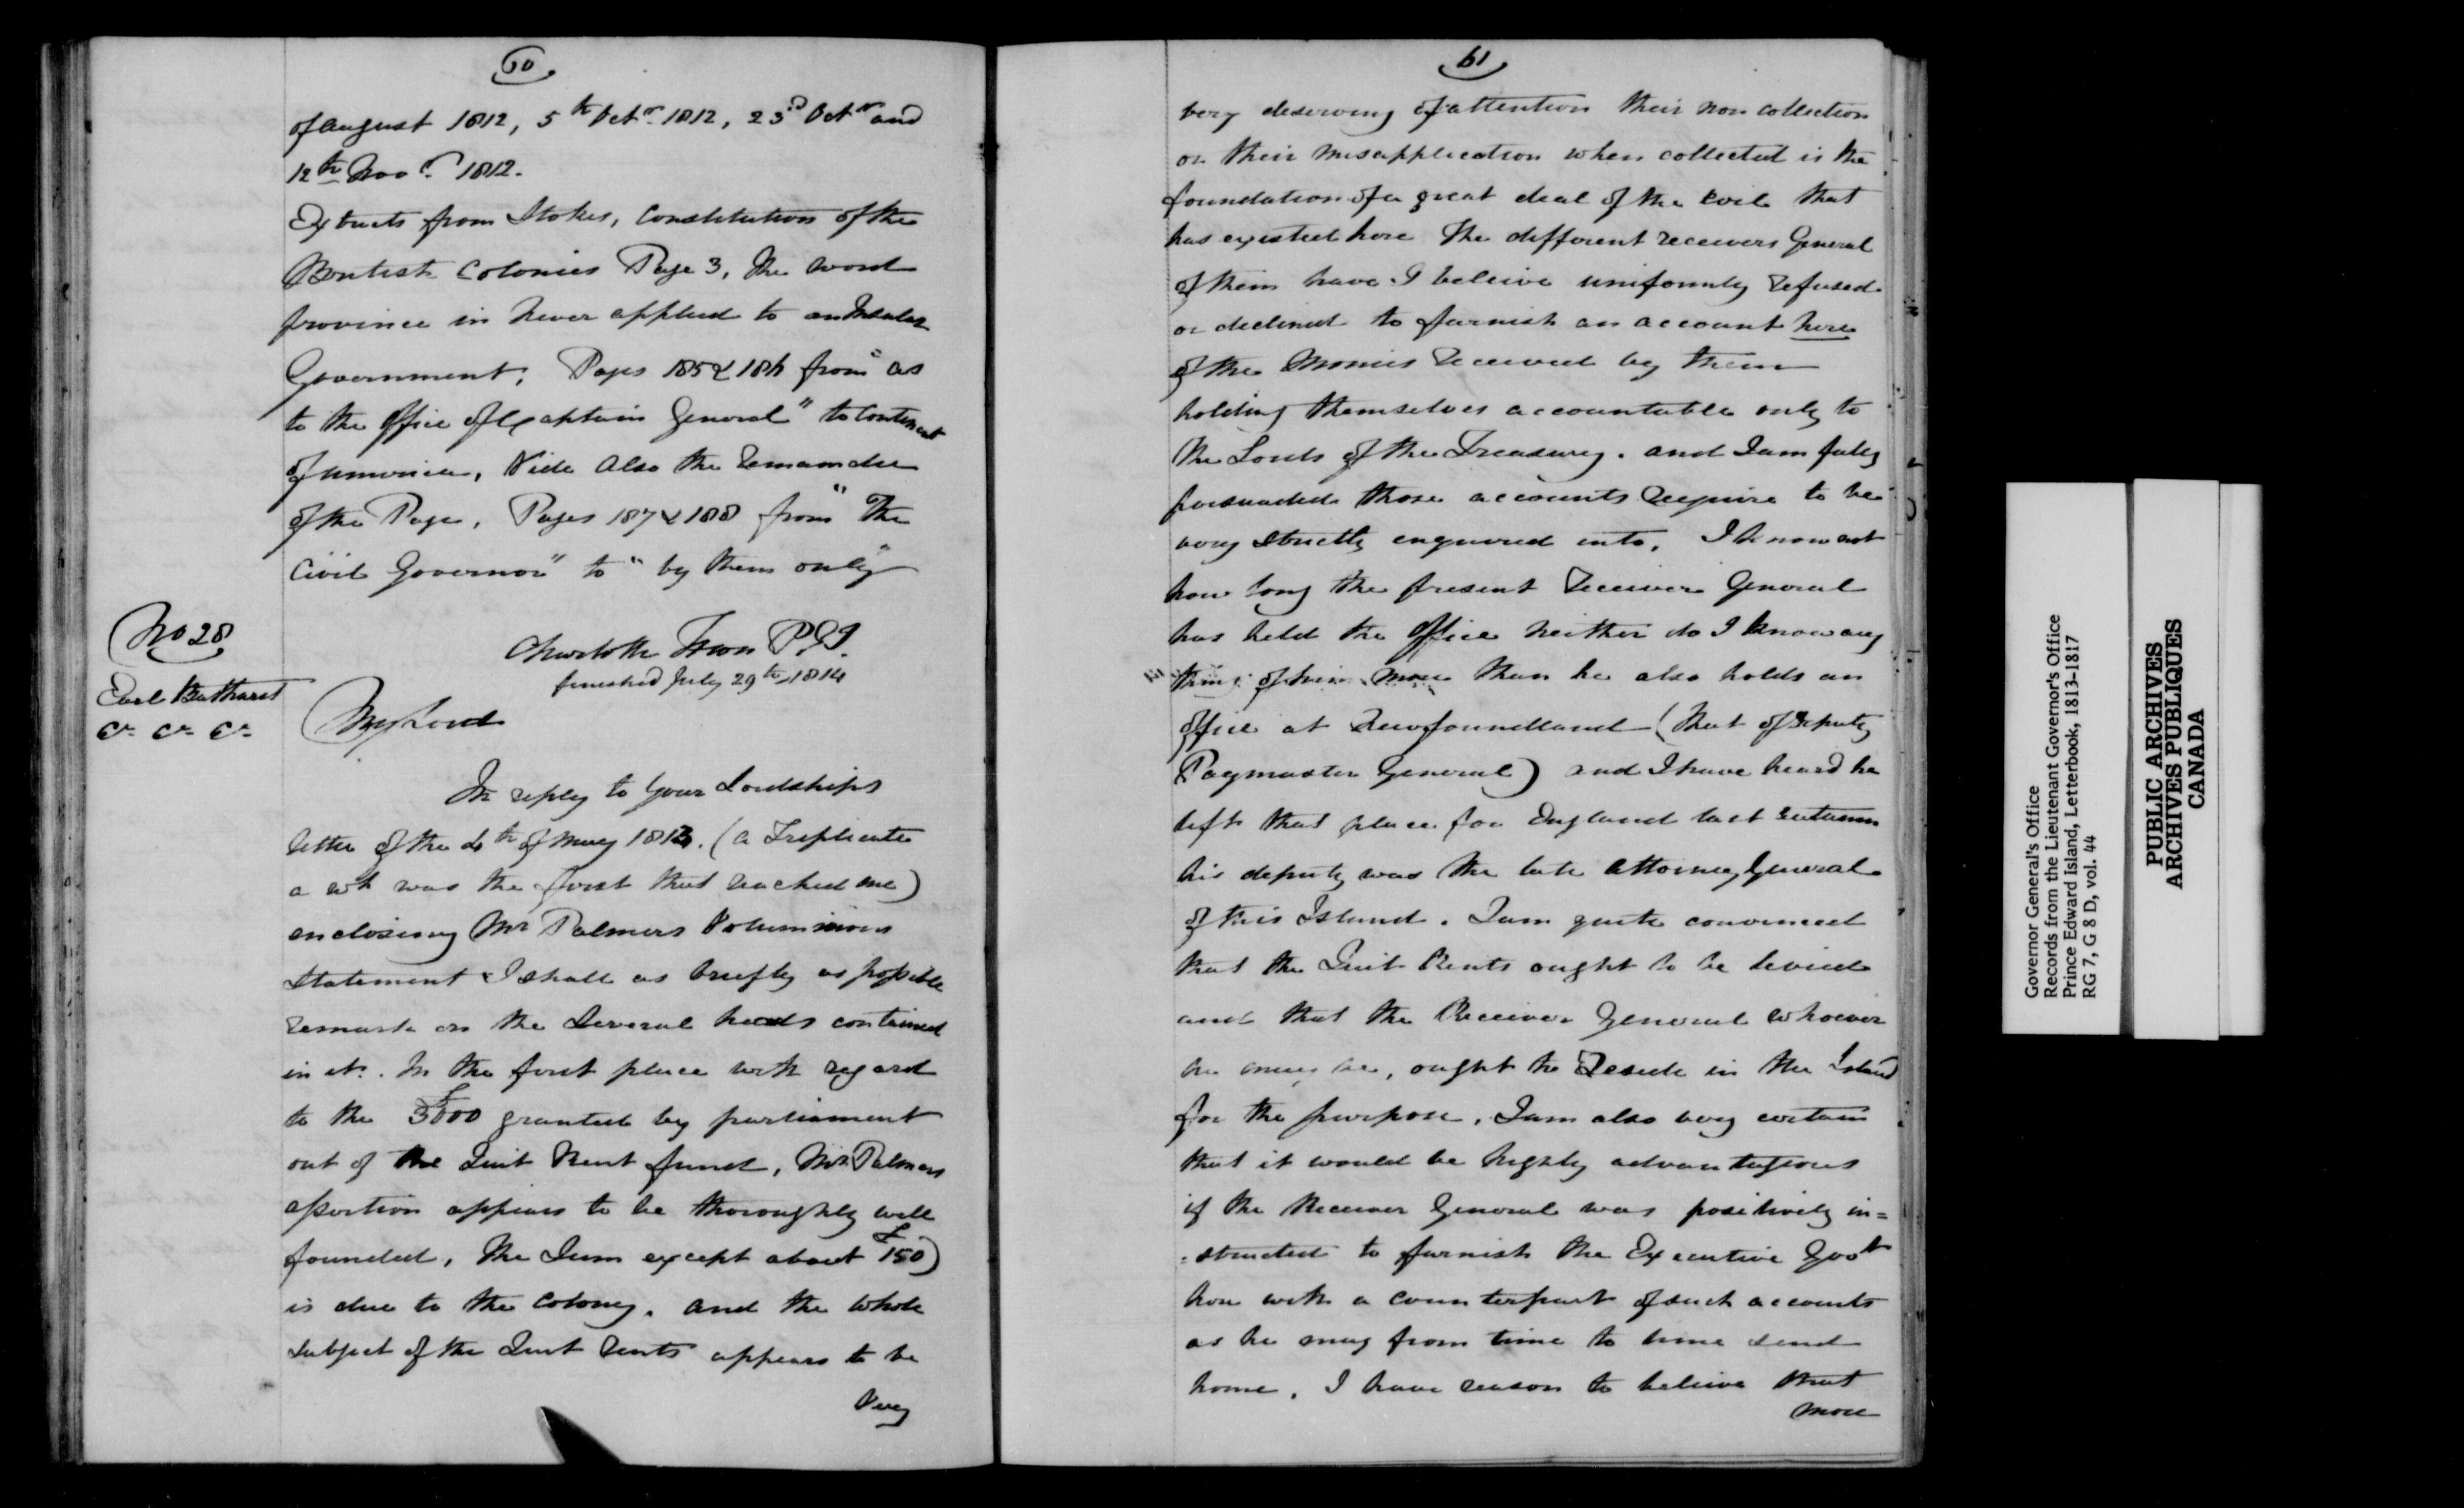 60
of August 1812, 5th Octr 1812, 23d Octr and
12th Novr 1812.
Extracts from Stokes, Constitution of the
British Colonies Page 3, the word
province in never applied to an Insular
Government, Pages 185 & 186 from "as
to the Office of Captain General" to Continent
of America, Vide also the remainder
of the Page, Pages 187 & 188 from "The
Civil Governor" to "by them only"
No 28
Earl Bathurst
&c &c &c
Charlotte Town P.E.I.
finished July 29th 1814
My Lord
In reply to your Lordships
letter of the 4th of May 1813. (a Triplicate
a wh was the first that reached me)
enclosing Mr Palmers Voluminous
Statement I shall as briefly as possible
remark on the several heads contained
in it. In the first place with regard
to the £3000 granted by parliament
out of the Quit Rent fund, Mr Palmers
assertion appears to be thoroughly well
founded, The Sum except about £150)
is due to the Colony. and the whole
subject of the Quit Rents appears to be
Very
61
very deserving of attention their non collection
or their misapplication when collected is the
foundation of a great deal of the evil that
has existed here The different receivers General
of them have I beleive uniformly refused
or declined to furnish an account here
of the Monies received by them
holding themselves accountable only to
the Lords of the Treasury. and I am fully
persuaded those accounts require to be
very strictly enquired into. I know not
how long the present Receiver General
has held the Office neither do I know any
thing of him more than he also holds an
Office at Newfoundland (that of Deputy
Paymaster General) and I have heard he
left that place for England last Autumn
his deputy was the late Attorney General
of this Island. I am quite convinced
that the Quit Rents ought to be levied
and that the Receiver General whoever
he may be, ought to Reside in the Island
for the purpose. I am also very certain
that it would be highly advantageous
if the Receiver General was positively in=
=structed to furnish the Executive Govt
here with a counterpart of such accounts
as he may from time to time send
home. I have reason to believe that
more
Governor General's Office
Records from the Lieutenant Governor's Office
Prince Edward Island, Letterbook, 1813-1817
RG 7, G 8 D, vol. 44
PUBLIC ARCHIVES
ARCHIVES PUBLIQUES
CANADA